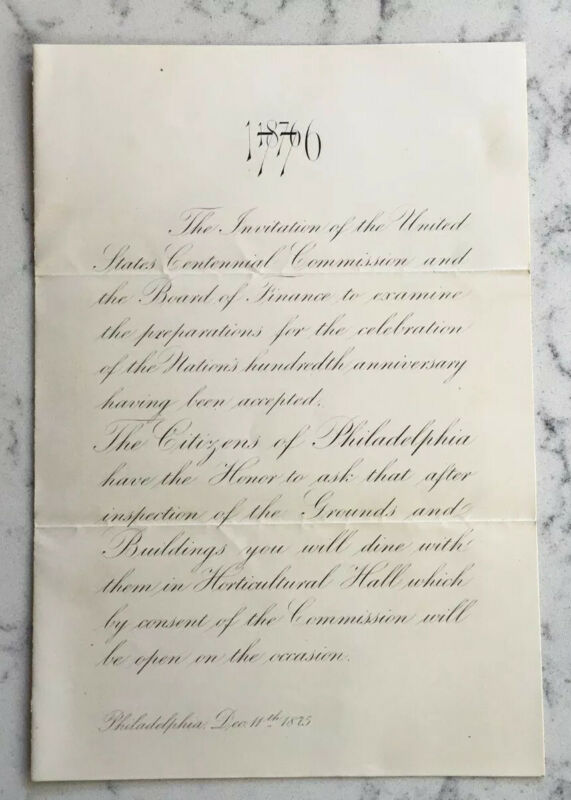 1776 1876
The Invitation of the United
States Centennial Commission and
the Board of Finance to examine
the preparations for the celebration
of the Nation's hundredth anniversary
having been accepted.
The Citizens of Philadelphia
have the Honor to ask that after
inspection of the Grounds and
Buildings you will dine with
them in Horticultural Hall which
by consent of the Commission will
be open on the occasion.
Philadelphia, Dec. 11th 1875